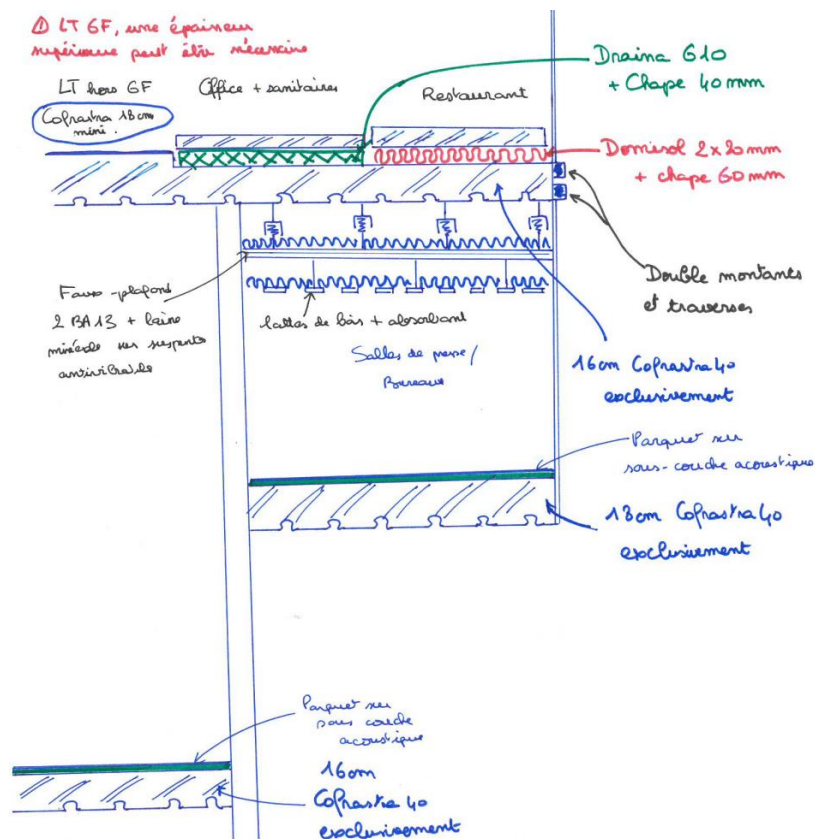 ⚠ LT GF, une épaisseur
supérieure peut être nécessaire
LT hors GF
Cofrastra 18cm
mini.
Office + sanitaires
Restaurant
Draina G10
+ Chape 40mm
Domisol 2x20mm
+ chape 60mm
Double montants
et traverses
Faux-plafond
2 BA13 + laine
minérale sur suspente
antivibratile
lattes de bois + absorbant
Salles de presse/
Bureaux
16cm Cofrastra 40
exclusivement
Parquet sur
sous-couche acoustique
13cm Cofrastra 40
exclusivement
Parquet sur
sous couche
acoustique
16cm
Cofrastra 40
exclusivement